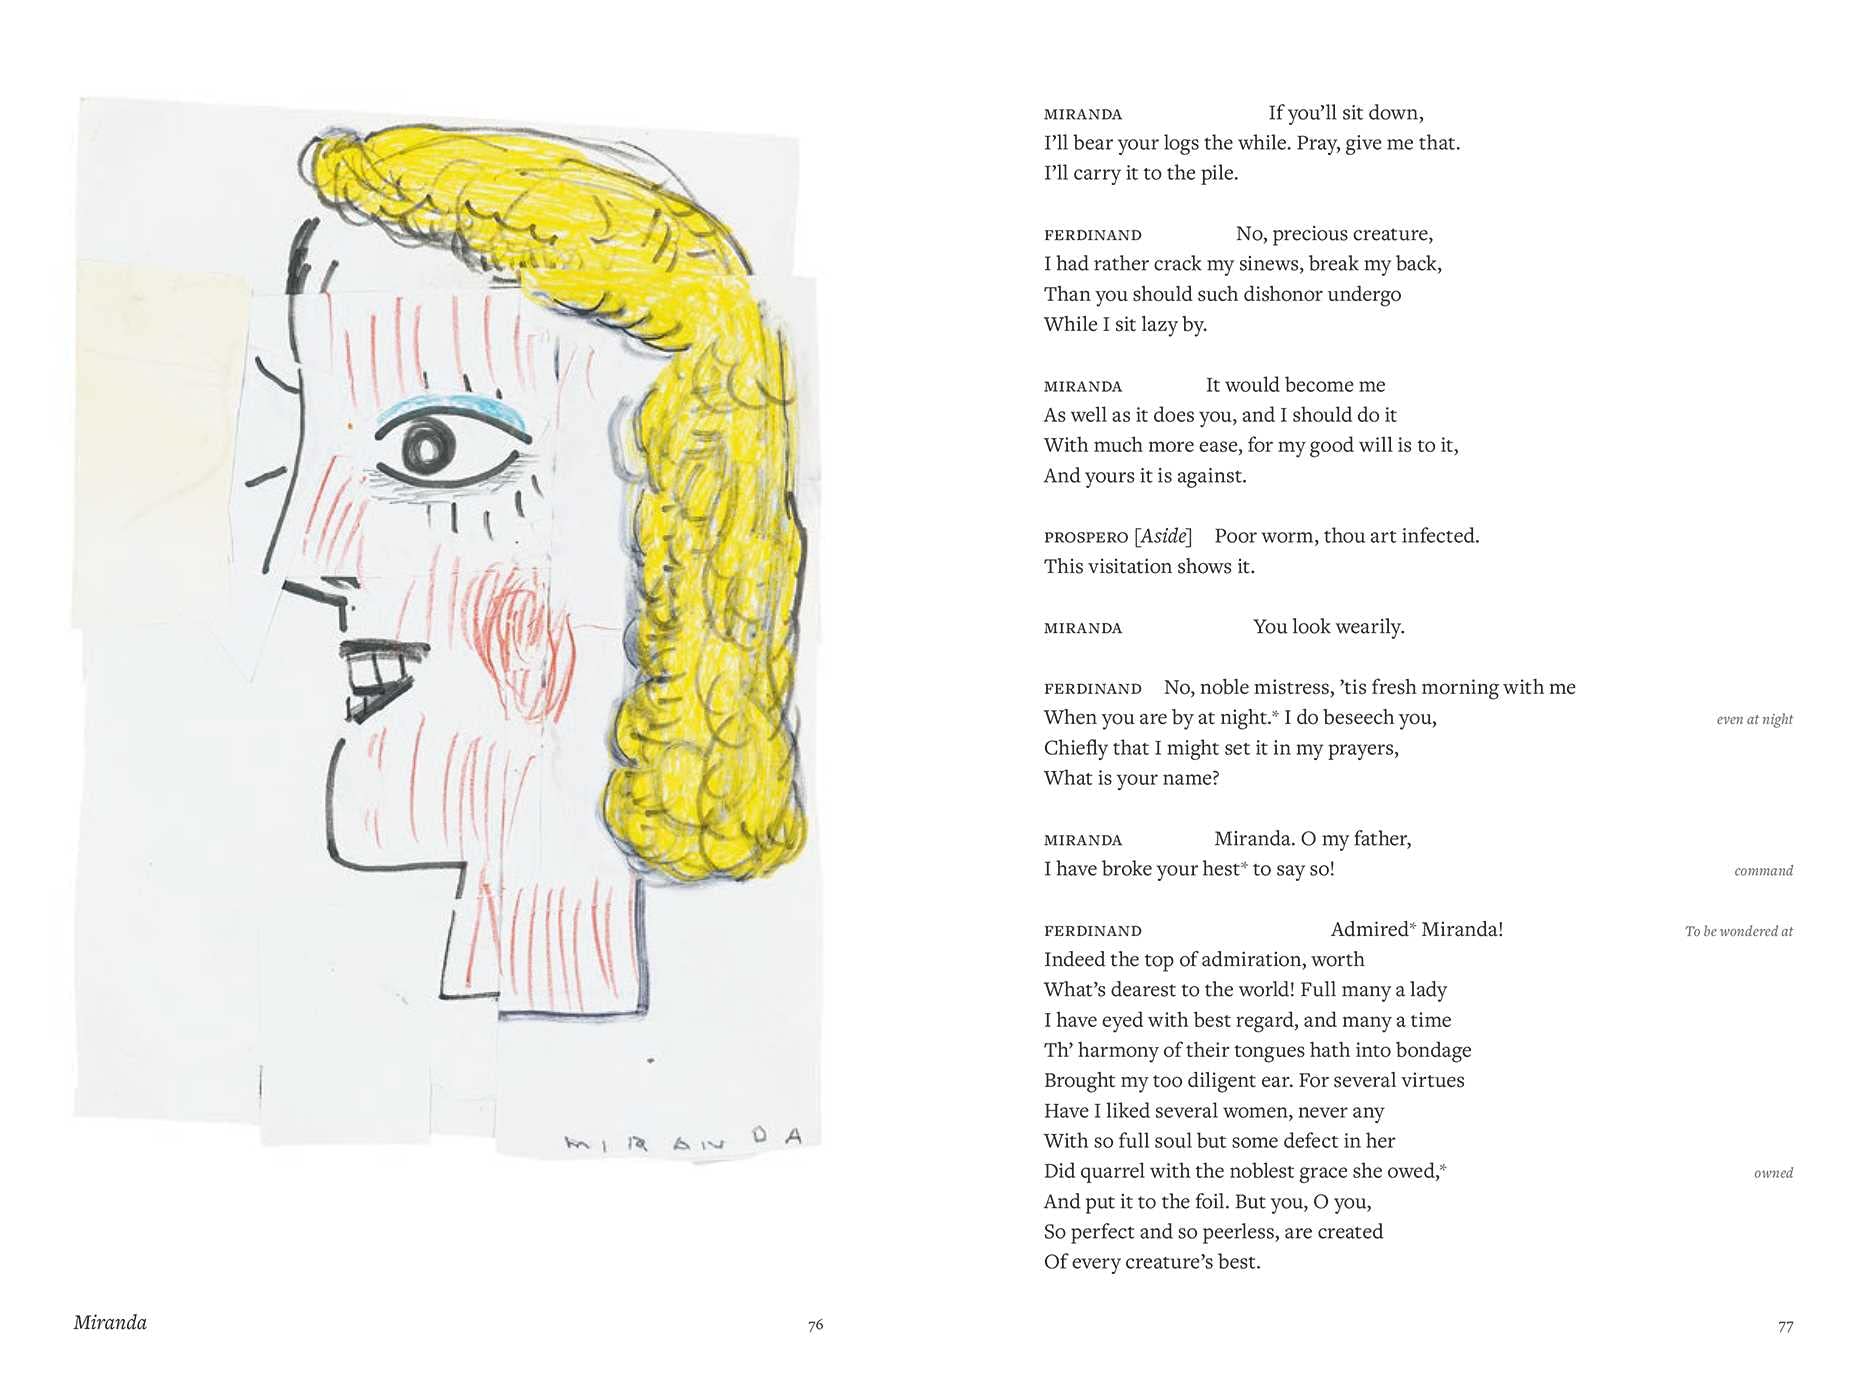 MIRANDA
Miranda
76
MIRANDA If you’ll sit down,
I’ll bear your logs the while. Pray, give me that.
I’ll carry it to the pile.
FERDINAND No, precious creature,
I had rather crack my sinews, break my back,
Than you should such dishonor undergo
While I sit lazy by.
MIRANDA It would become me
As well as it does you, and I should do it
With much more ease, for my good will is to it,
And yours it is against.
PROSPERO [Aside] Poor worm, thou art infected.
This visitation shows it.
MIRANDA You look wearily.
FERDINAND No, noble mistress, ’tis fresh morning with me
When you are by at night.* I do beseech you, even at night
Chiefly that I might set it in my prayers,
What is your name?
MIRANDA Miranda. O my father,
I have broke your hest* to say so! command
FERDINAND Admired* Miranda! To be wondered at
Indeed the top of admiration, worth
What’s dearest to the world! Full many a lady
I have eyed with best regard, and many a time
Th’ harmony of their tongues hath into bondage
Brought my too diligent ear. For several virtues
Have I liked several women, never any
With so full soul but some defect in her
Did quarrel with the noblest grace she owed,* owned
And put it to the foil. But you, O you,
So perfect and so peerless, are created
Of every creature’s best.
77